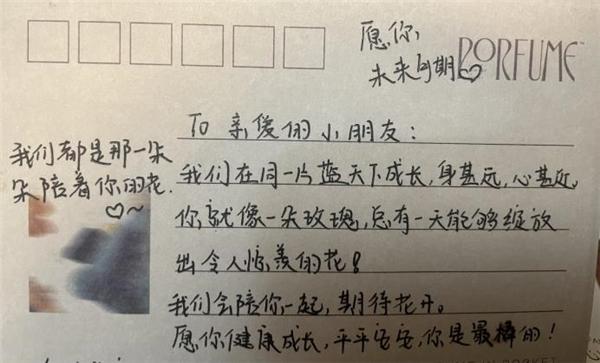 愿你,
未来可期♡
PORFUME
To 亲爱的小朋友:
我们都是那一朵
朵陪着你的花.
♡~
我们在同一片蓝天下成长,身甚远,心甚近。
你就像一朵玫瑰,总有一天能够绽放
出令人惊羡的花!
我们会陪你一起,期待花开。
愿你健康成长,平平安安,你是最棒的!